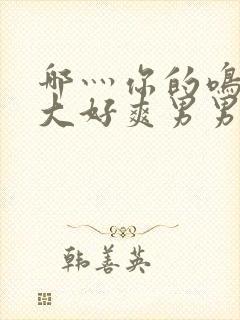 哪灬你的鸣
大好爽男男
韩善英